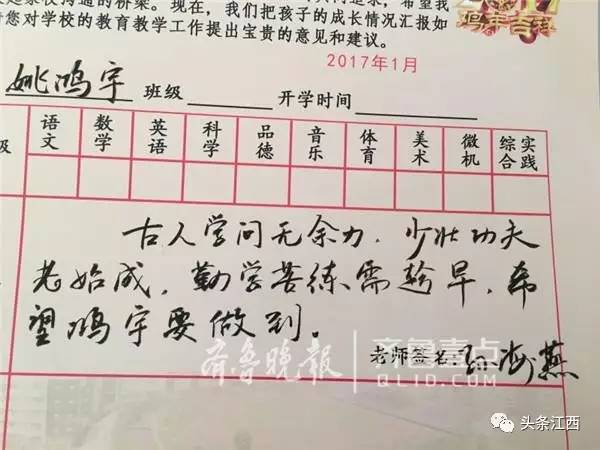 建家校沟通的桥梁。现在，我们把孩子的成长情况汇报如
请您对学校的教育教学工作提出宝贵的意见和建议。
鸡年吉祥
2017年1月
姚鸿宇 班级 开学时间
级 语文 数学 英语 科学 品德 音乐 体育 美术 微机 综合实践
古人学问无余力，少壮功夫
老始成，勤学苦练需趁早，希
望鸿宇要做到。
老师签名：孙海燕
齐鲁晚报 齐鲁壹点
QLID.COM
头条江西